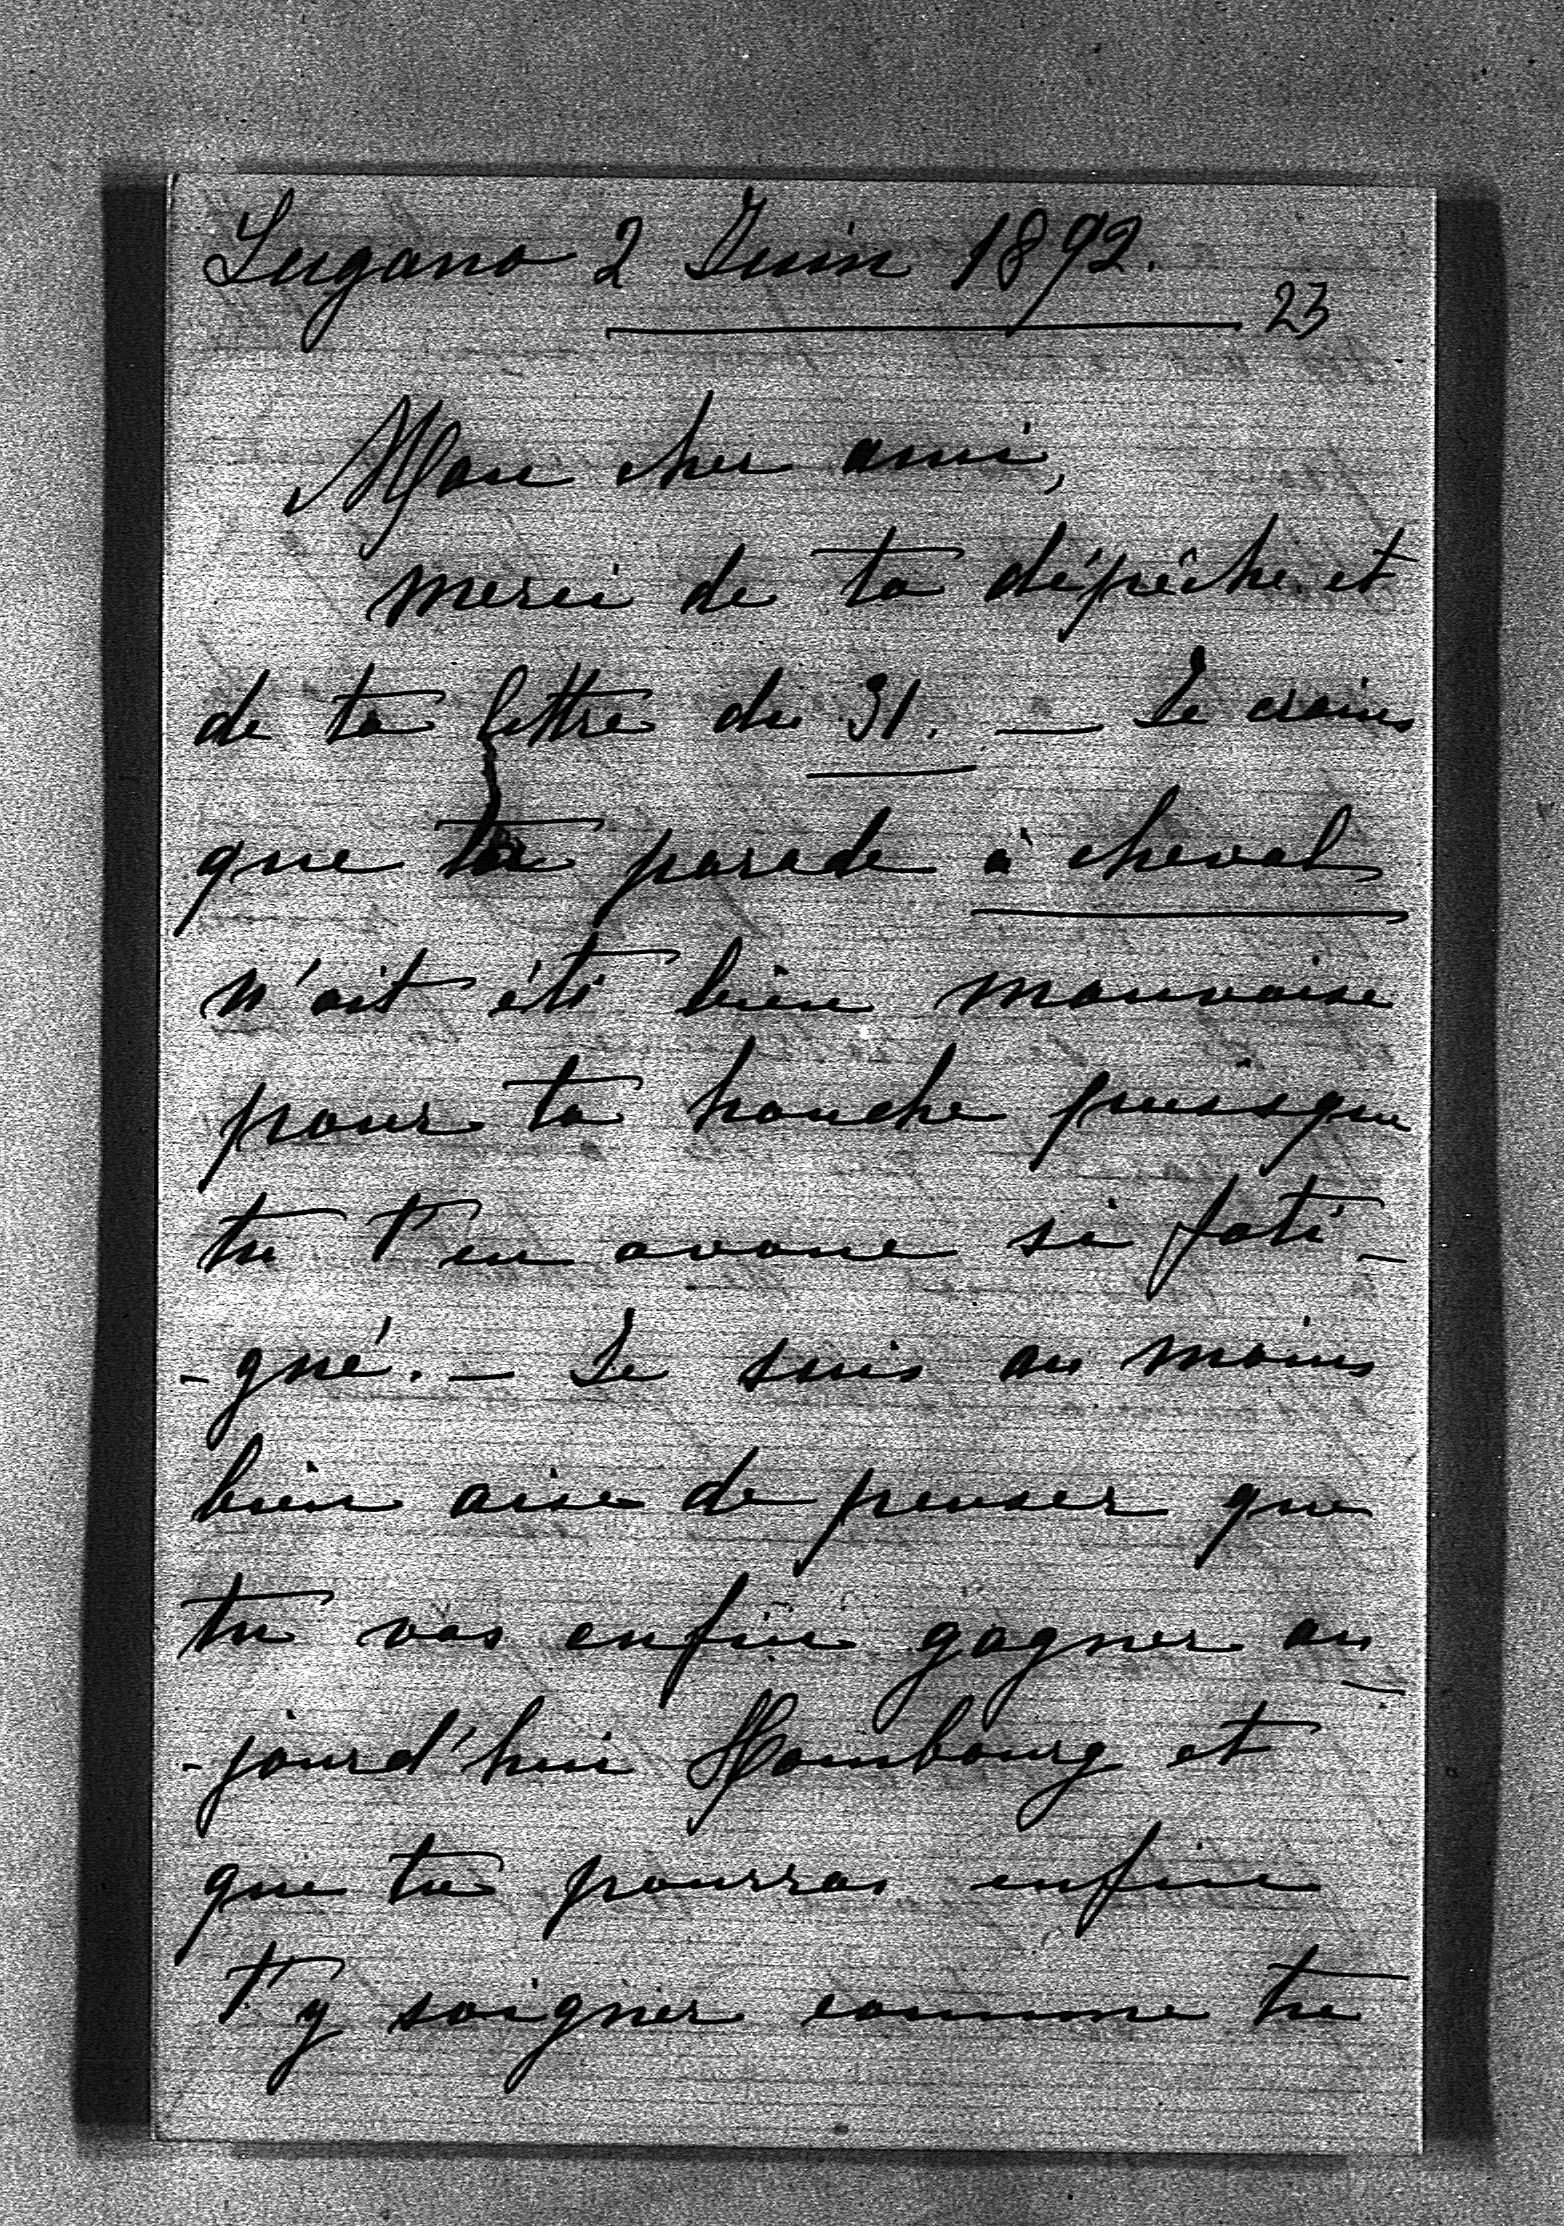 Lugano 2 Juin 1892.
23
Mon cher ami,
merci de ta dépêche et
de ta lettre du 31. — Je crains
que ta parade à cheval
n'ait été bien mauvaise
pour ta hanche puisque
tu t'en avoue si fati-
-gué. — Je suis au moins
bien aise de penser que
tu vas enfin gagner au-
-jourd'hui Hombourg et
que tu pourras enfin
t'y soigner comme tu